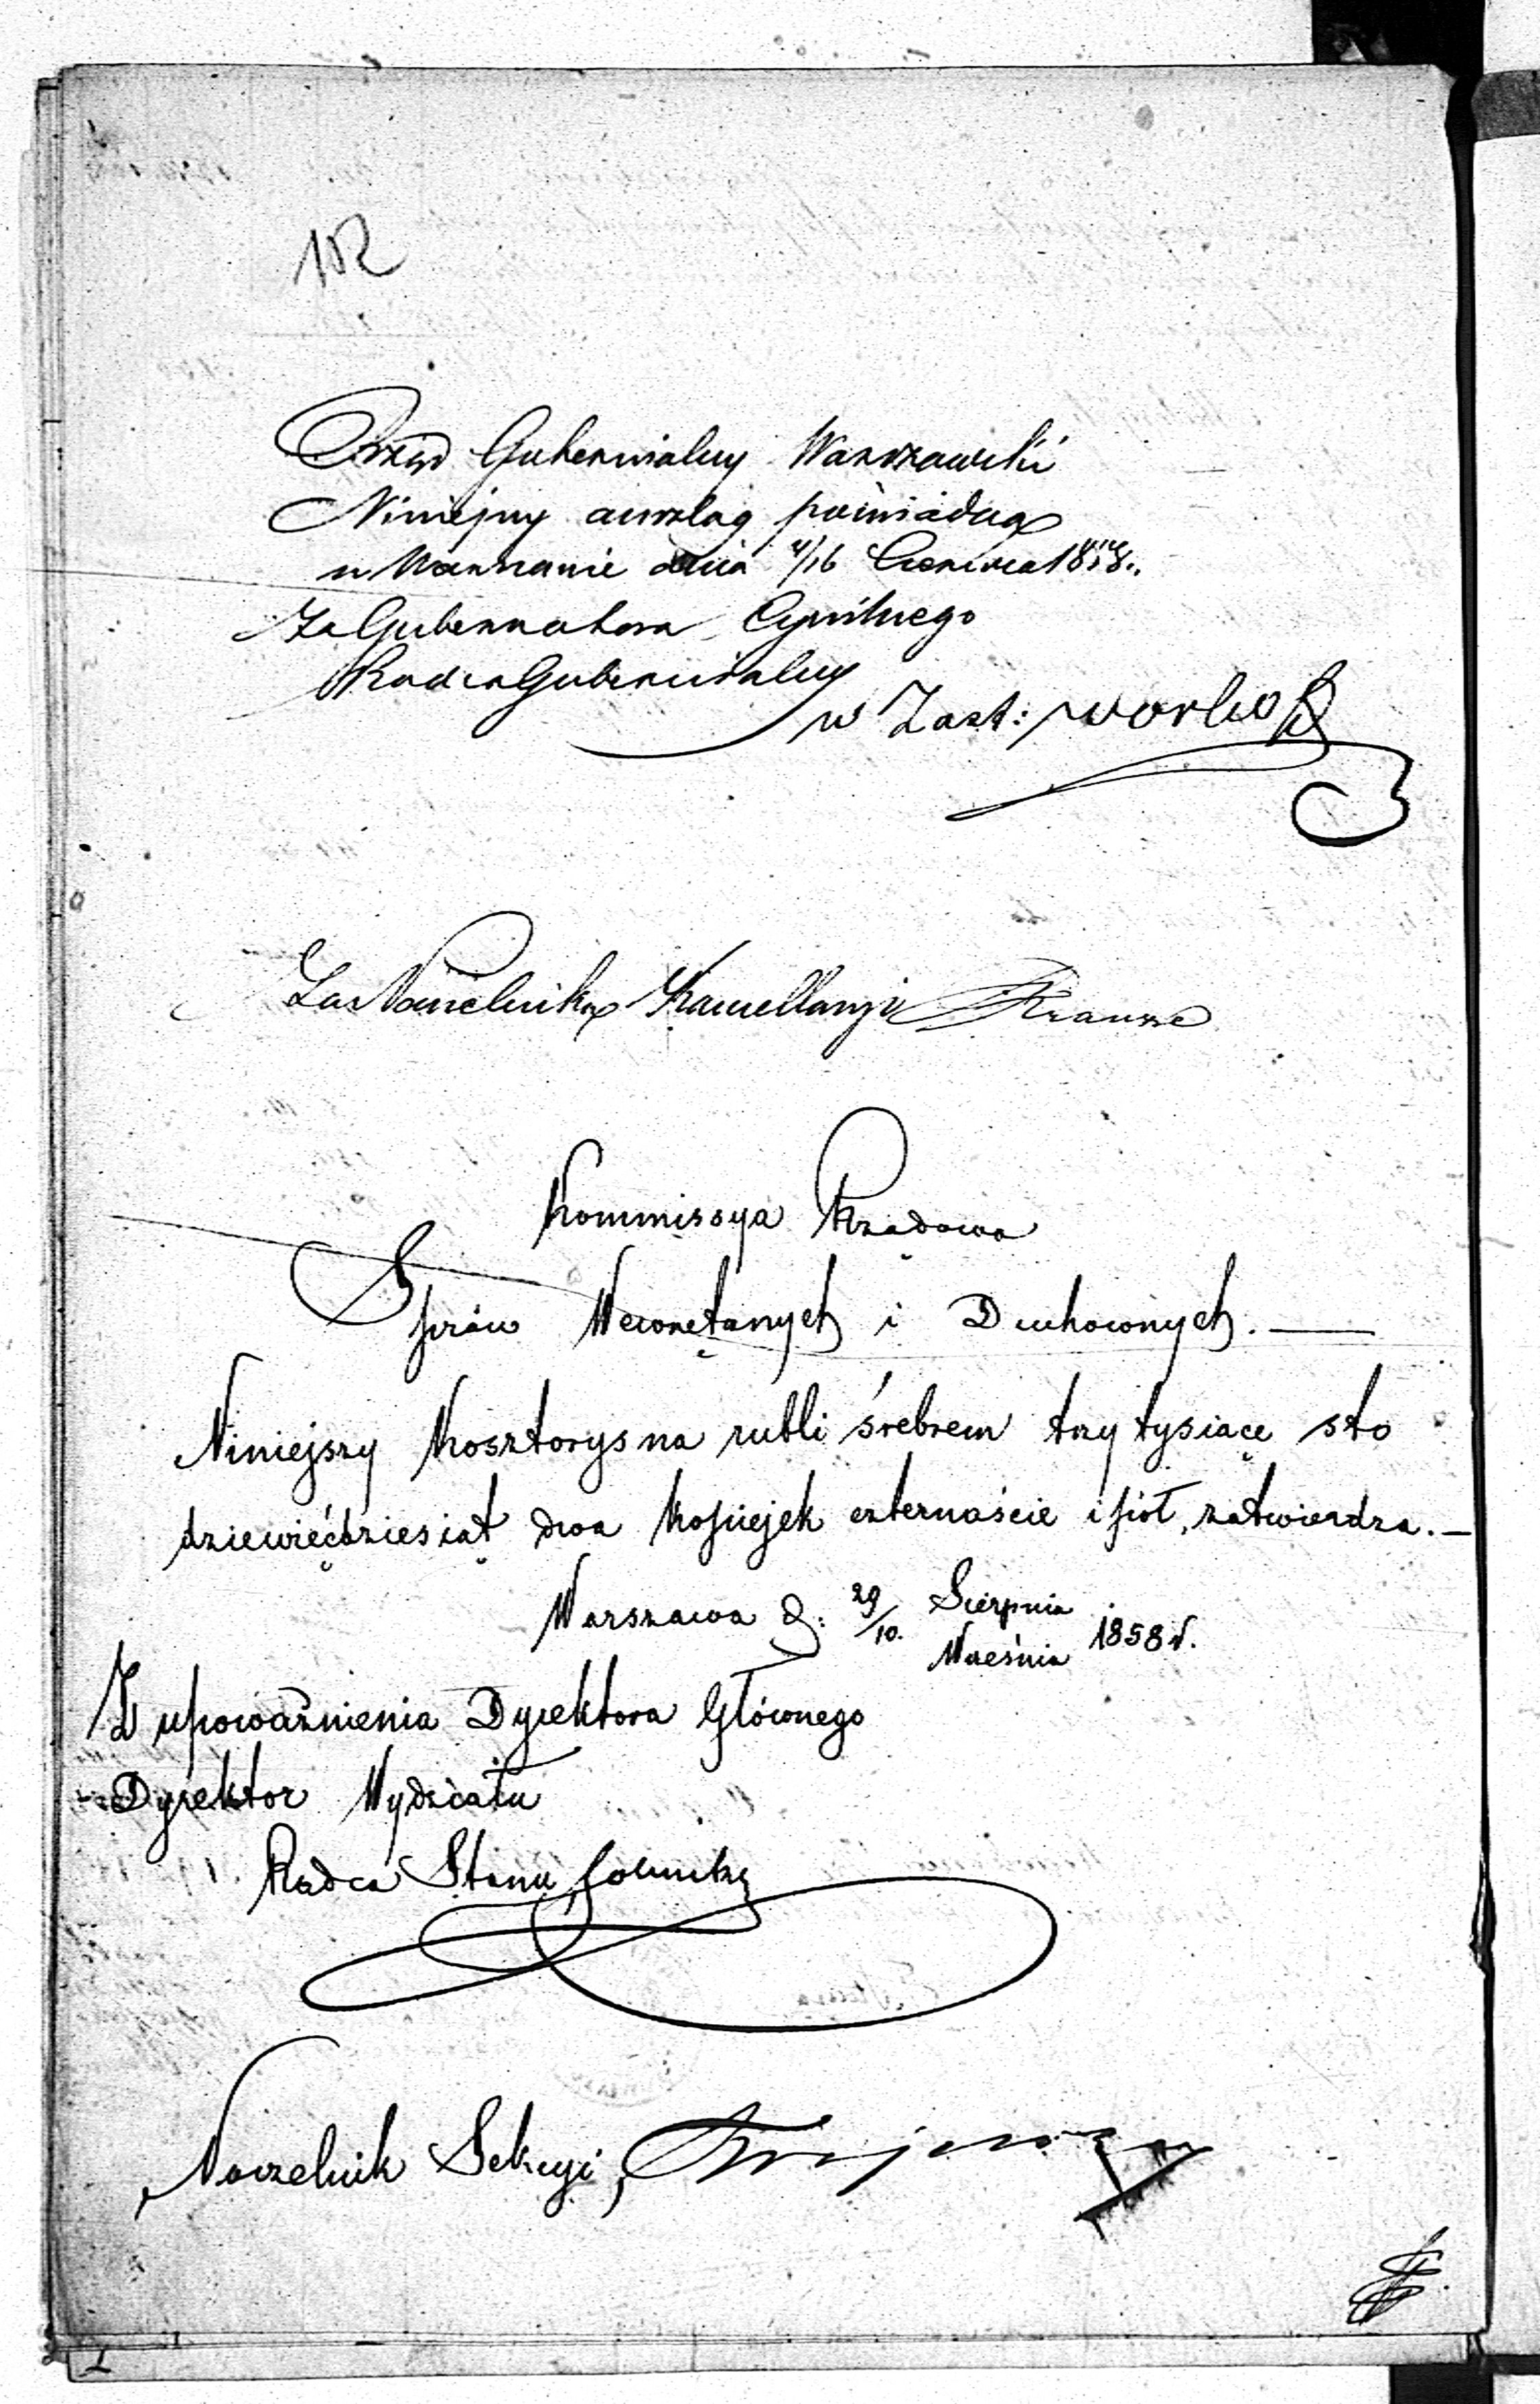 102
Rząd Gubernialny Warszawski
Niniejszy anszlag poświadcza
w Warszawie dnia 4/16 Czerwca 1858 r.
Za Gubernatora Cywilnego
Radca Gubernialny
w Zast:
Za Naczelnika Kancellaryi Krauze
Kommissya Rządowa
Spraw Wewnętznych i Duchownych. —
Niniejszy Kosztorys na rubli śrebrem trzy tysiące sto
dziewięćdziesiąt dwa kopiejek czternaście i pół, zatwierdza. —
Warszawa d: 29/10. Sierpnia Września 1858 r.
Z upoważnienia Dyrektora Głównego
Dyrektor Wydziału
Radca Stanu
Naczelnik Sekcyi,